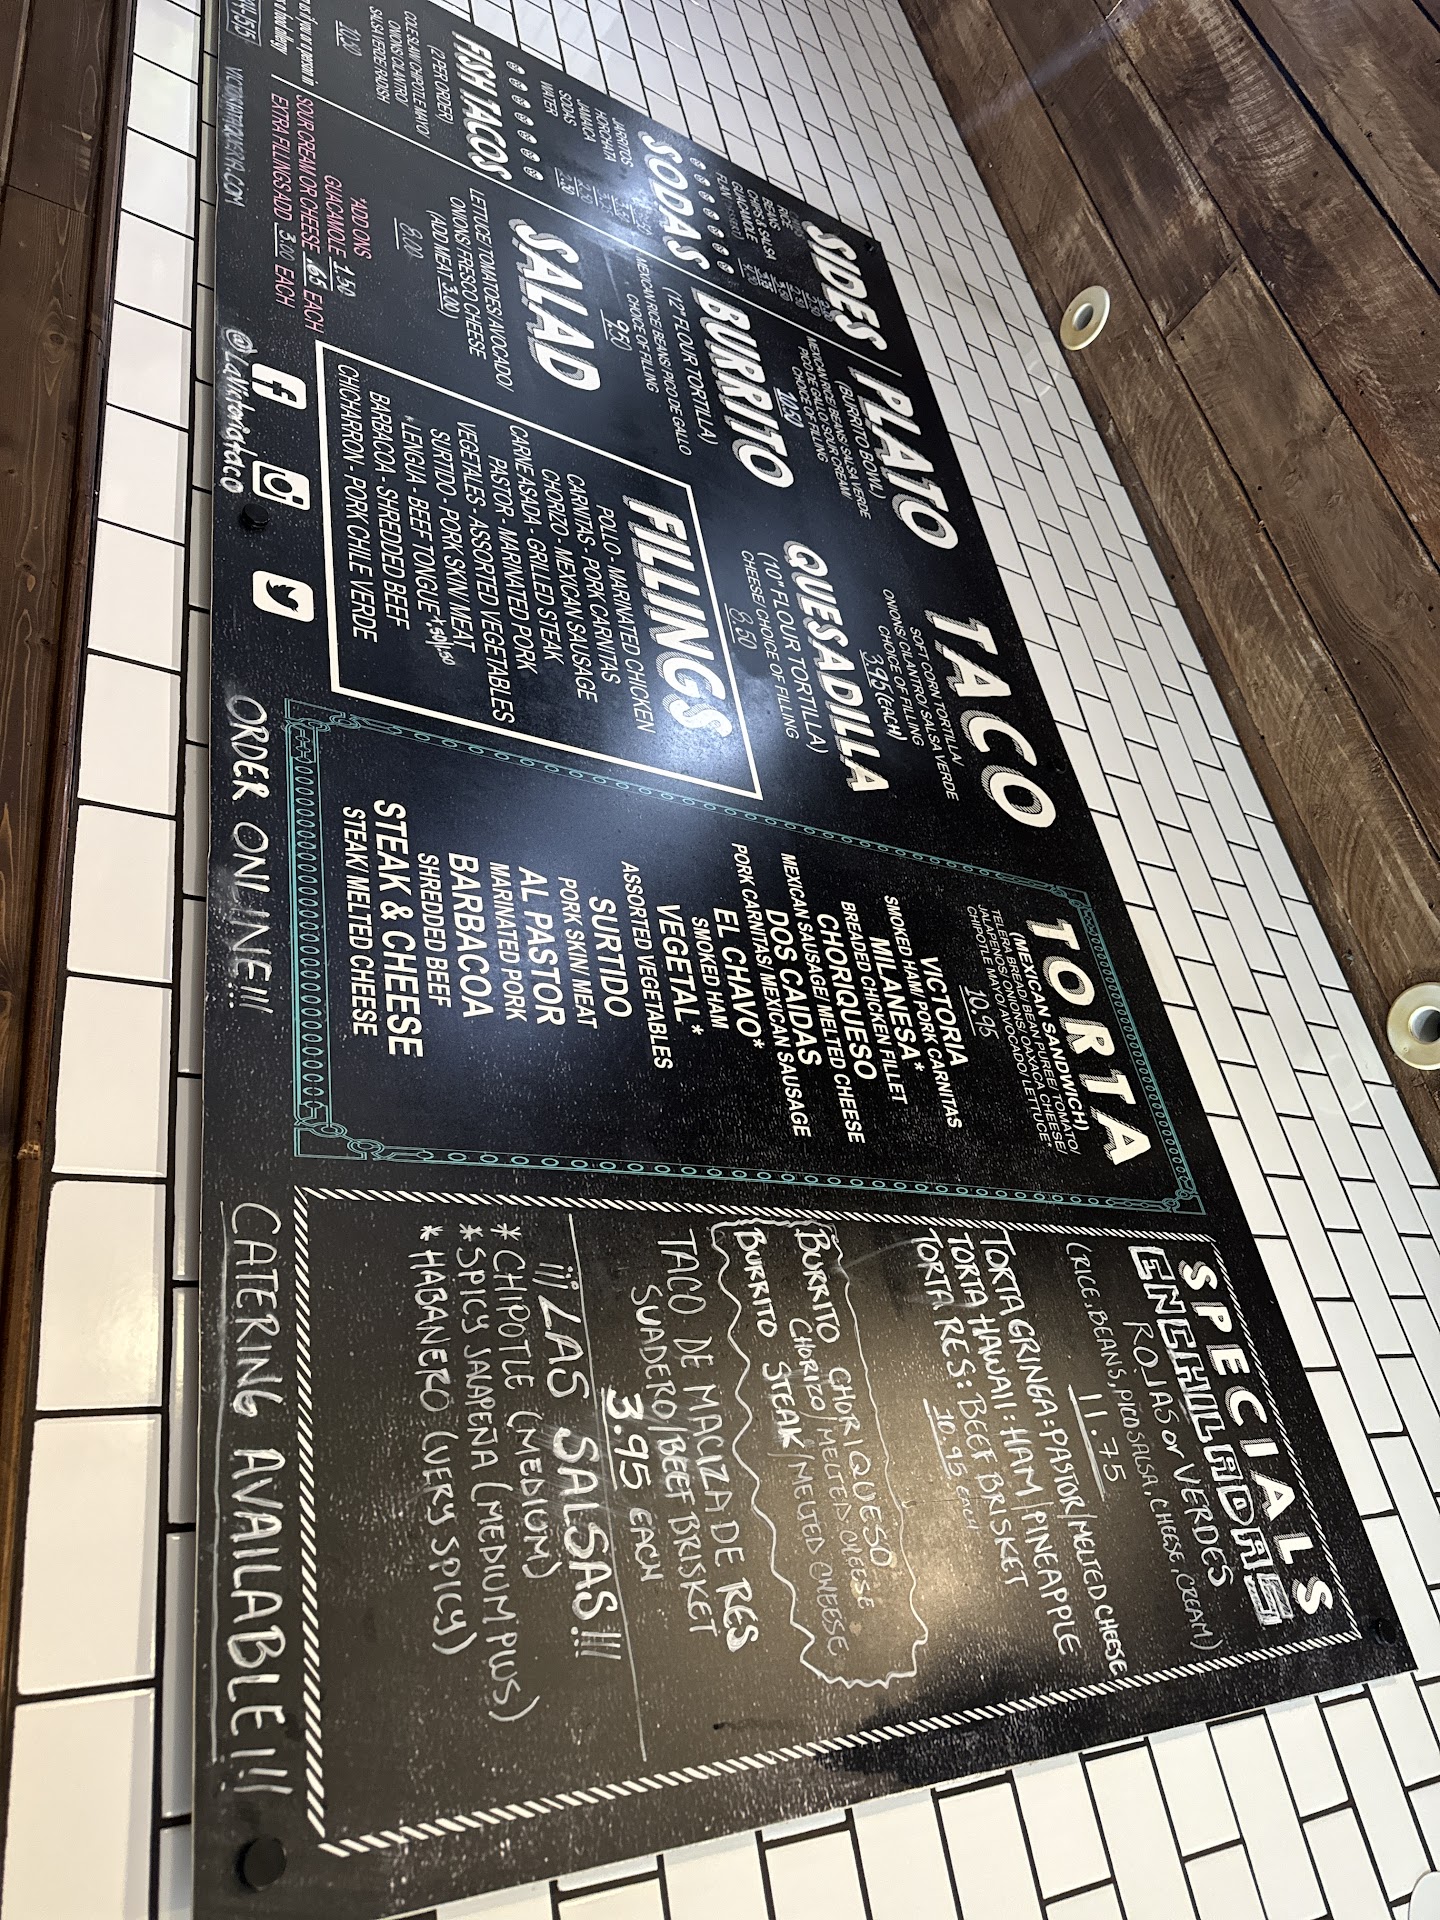 SIDES
RICE
BEANS
CHIPS SALSA
GUACAMOLE
FLAN
SODAS
JARRITOS
HORCHATA
JAMAICA
SODAS
WATER
2.50
FISH TACOS
(2 PER ORDER)
COLESLAW/ CHIPOTLE MAYO/
ONIONS/ CILANTRO/
SALSA VERDE/ RADISH
10.50
PLATO
(BURRITO BOWL)
MEXICAN RICE/ BEANS/ SALSA VERDE
PICO DE GALLO/ SOUR CREAM/
CHOICE OF FILLING
10.50
BURRITO
(12" FLOUR TORTILLA)
MEXICAN RICE/ BEANS/ PICO DE GALLO
CHOICE OF FILLING
9.50
SALAD
LETTUCE/ TOMATOES/ AVOCADO/
ONIONS/ FRESCO CHEESE
(ADD MEAT 3.00)
8.00
*ADD ONS
GUACAMOLE 1.50
SOUR CREAM OR CHEESE .65 EACH
EXTRA FILLINGS ADD 3.00 EACH
TACO
SOFT CORN TORTILLA/
ONIONS/ CILANTRO/ SALSA VERDE
CHOICE OF FILLING
3.95 (EACH)
QUESADILLA
(10" FLOUR TORTILLA)
CHEESE/ CHOICE OF FILLING
8.50
FILLINGS
POLLO - MARINATED CHICKEN
CARNITAS - PORK CARNITAS
CHORIZO - MEXICAN SAUSAGE
CARNE ASADA - GRILLED STEAK
PASTOR - MARINATED PORK
VEGETALES - ASSORTED VEGETABLES
SURTIDO - PORK SKIN/ MEAT
* LENGUA - BEEF TONGUE
BARBACOA - SHREDDED BEEF
CHICHARRON - PORK CHILE VERDE
TORTA
(MEXICAN SANDWICH)
TELERA BREAD/ BEAN PUREE/ TOMATO/
JALAPENOS/ ONIONS/ OAXACA CHEESE/
CHIPOTLE MAYO/ AVOCADO/ LETTUCE*
10.95
VICTORIA
SMOKED HAM/ PORK CARNITAS
MILANESA*
BREADED CHICKEN FILLET
CHORIQUESO
MEXICAN SAUSAGE/ MELTED CHEESE
DOS CAIDAS
PORK CARNITAS/ MEXICAN SAUSAGE
EL CHAVO*
SMOKED HAM
VEGETAL*
ASSORTED VEGETABLES
SURTIDO
PORK SKIN/ MEAT
AL PASTOR
MARINATED PORK
BARBACOA
SHREDDED BEEF
STEAK & CHEESE
STEAK/ MELTED CHEESE
SPECIALS
ENCHILADAS
ROJAS or VERDES
(RICE, BEANS, PICO SALSA, CHEESE, CREAM)
11.75
TORTA GRINGA: PASTOR/MELTED CHEESE
TORTA HAWAI: HAM/PINEAPPLE
TORTA RES: BEEF BRISKET
10.95 each
BURRITO CHORIQUESO
CHORIZO/MELTED CHEESE
BURRITO STEAK/MELTED CHEESE
TACO DE MACIZA DE RES
SUADERO/BEEF BRISKET
3.95 EACH
¡¡¡LAS SALSAS!!!
*CHIPOTLE (MEDIUM)
*SPICY JALAPEÑA (MEDIUM PLUS)
*HABANERO (VERY SPICY)
@LaVictoriataco
ORDER ONLINE!!!
CATERING AVAILABLE!!!